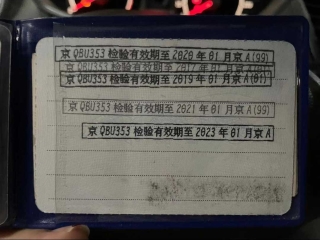 京QBU353 检验有效期至 2020 年 01 月京 A(99)
京QBU353 检验有效期至 2017 年 01 月京
京QBU353 检验有效期至 2019 年 01 月京 A(01)
京 QBU353 检验有效期至 2021 年 01 月京 A(99)
京 QBU353 检验有效期至 2023 年 01 月京 A